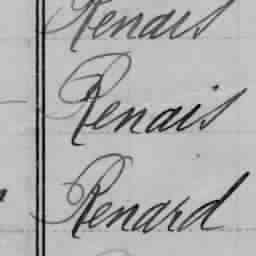 Renais
Renais
Renard